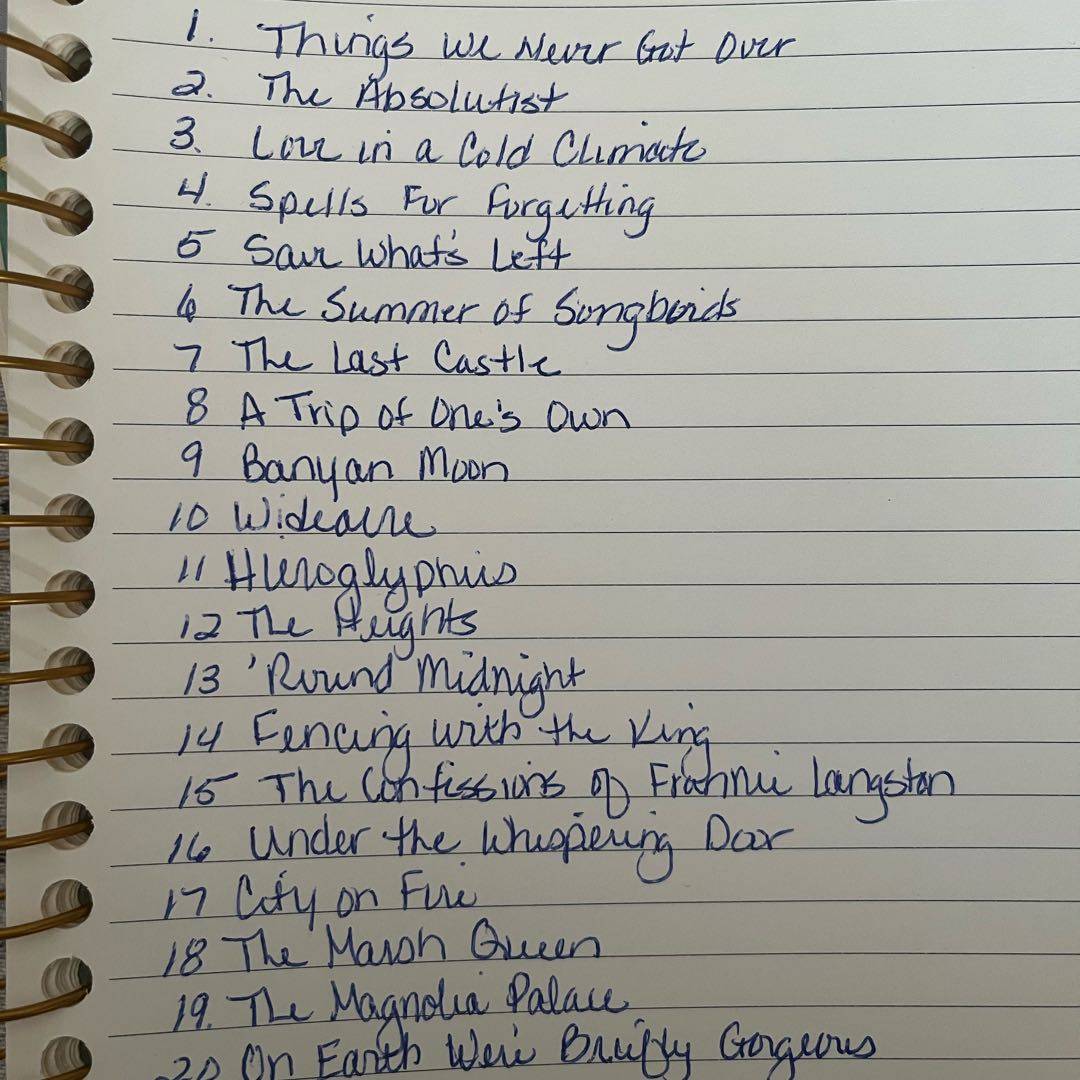 1. Things We Never Got Over
2. The Absolutist
3. Love in a Cold Climate
4. Spells For Forgetting
5 Save What's Left
6 The Summer of Songbirds
7 The Last Castle
8 A Trip of One's Own
9 Banyan Moon
10 Wideacre
11 Hieroglyphics
12 The Heights
13 'Round Midnight
14 Fencing with the King
15 The Confessions of Frannie Langston
16 Under the Whispering Door
17 City on Fire
18 The Marsh Queen
19. The Magnolia Palace
20 On Earth We're Briefly Gorgeous